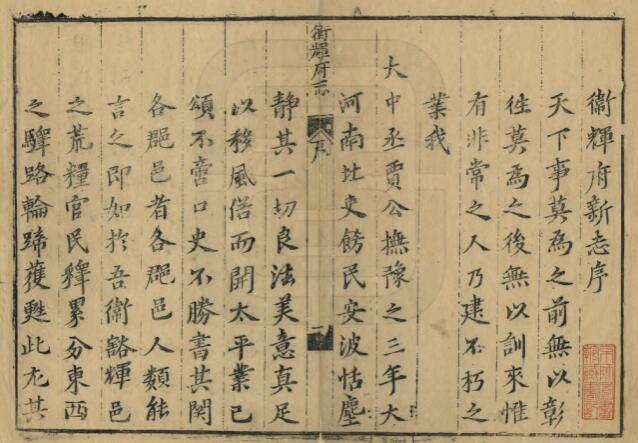 衛輝府新志序
天下事莫爲之前無以彰
徃莫爲之後無以訓來惟
有非常之人乃建不朽之
業我
大中丞賈公撫豫之三年大
河南北吏飭民安波恬塵
衛輝府志
序
一
靜其一切良法美意真足
以移風俗而開太平業已
頌不啻口史不勝書其関
各郡邑者各郡邑人類能
言之即如於吾衛豁輝邑
之荒糧官民釋累分東西
之驛路輪蹄獲甦此尤其